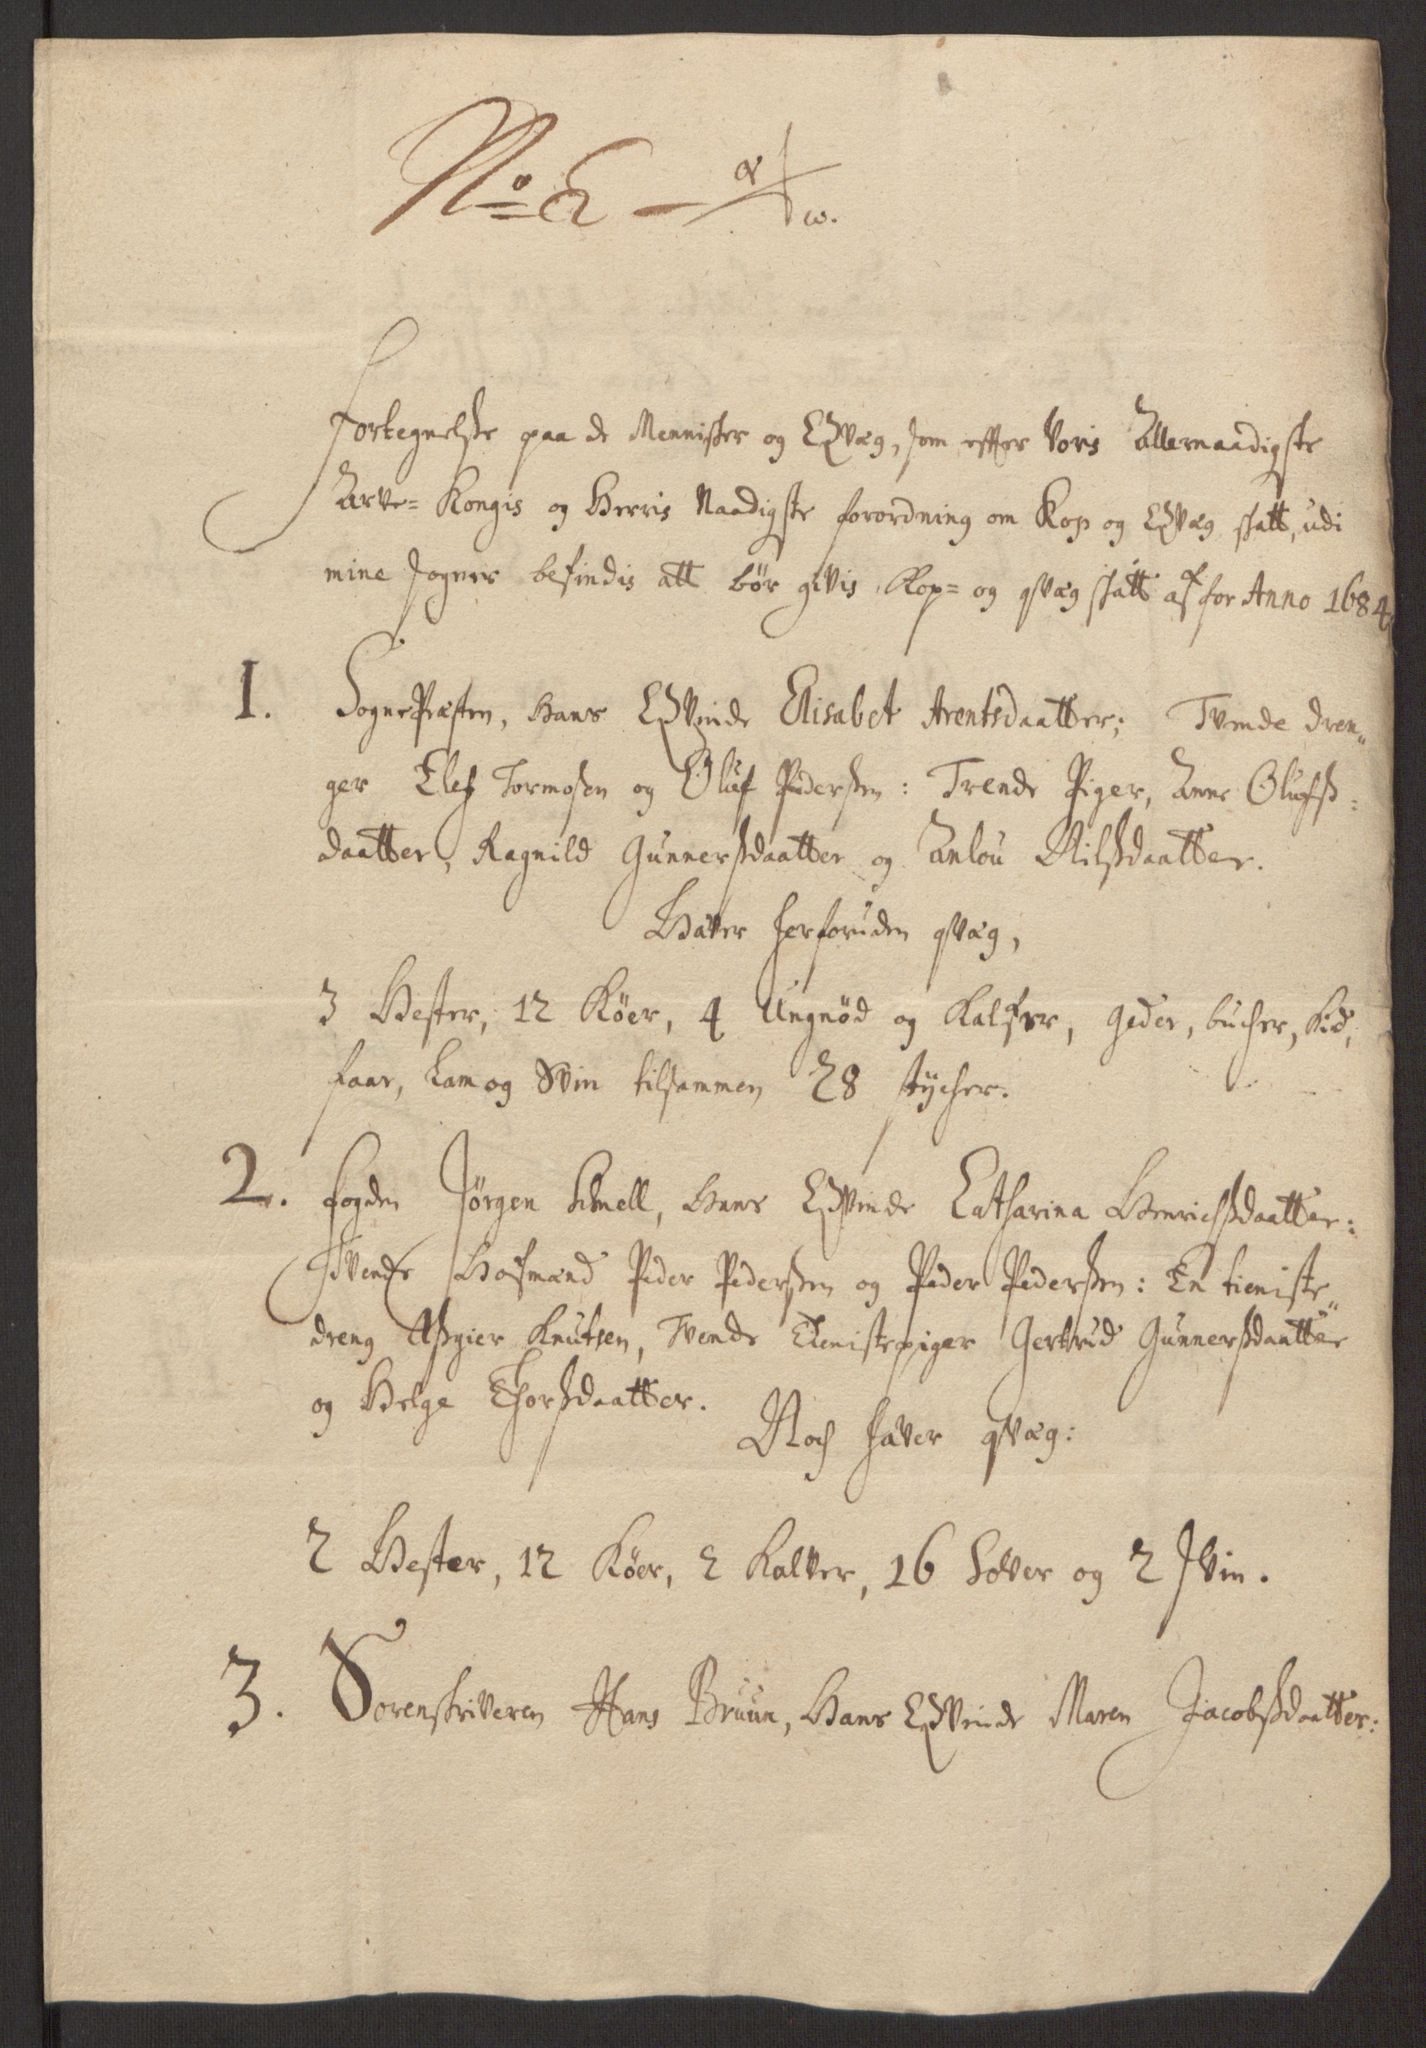 No E —
Fortegnelse paa de Mennisker og Qvæg, som effter Voris Allernaadigste
Arve= Kongis og Herris Naadigste forordning om Kop og Qvæg skatt, udi
mine sogner befindis att bør givis Kop= og qvæg skatt af for Anno 1684
1. SognePræsten, Hans Qvinde Elisabet Arentsdaatter; Tvende dren„
ger Elef Tormosen og Oluf Pedersen: Trende Piger, Anne Olufs=
daatter, Ragnild Gunnersdaatter og Anlou Nilsdaatter.
Haver herforuden qvæg,
3 Hester, 12 Köer, 4 Ungnöd og Kalfver, geder, bucher, Kid,
faar, Lam og Svin tilsammen 28 stycher.
2. Fogden Jørgen Schnell, Hans Qvinde Catharina Henrichsdaatter:
Tvende Hofmænd Peder Pedersen og Peder Pedersen: En tieniste„
dreng Assgier Knutsen, Tvende Tienistepiger Gertrud Gunnersdaatter
og Helge Thorsdaatter.
Noch haver qvæg:
2 Hester, 12 Köer, 2 Kalver, 16 Söver og 2 Svin.
3. Sorenskriveren Hans Bruun, Hans Qvinde Maren Jacobsdaatter: